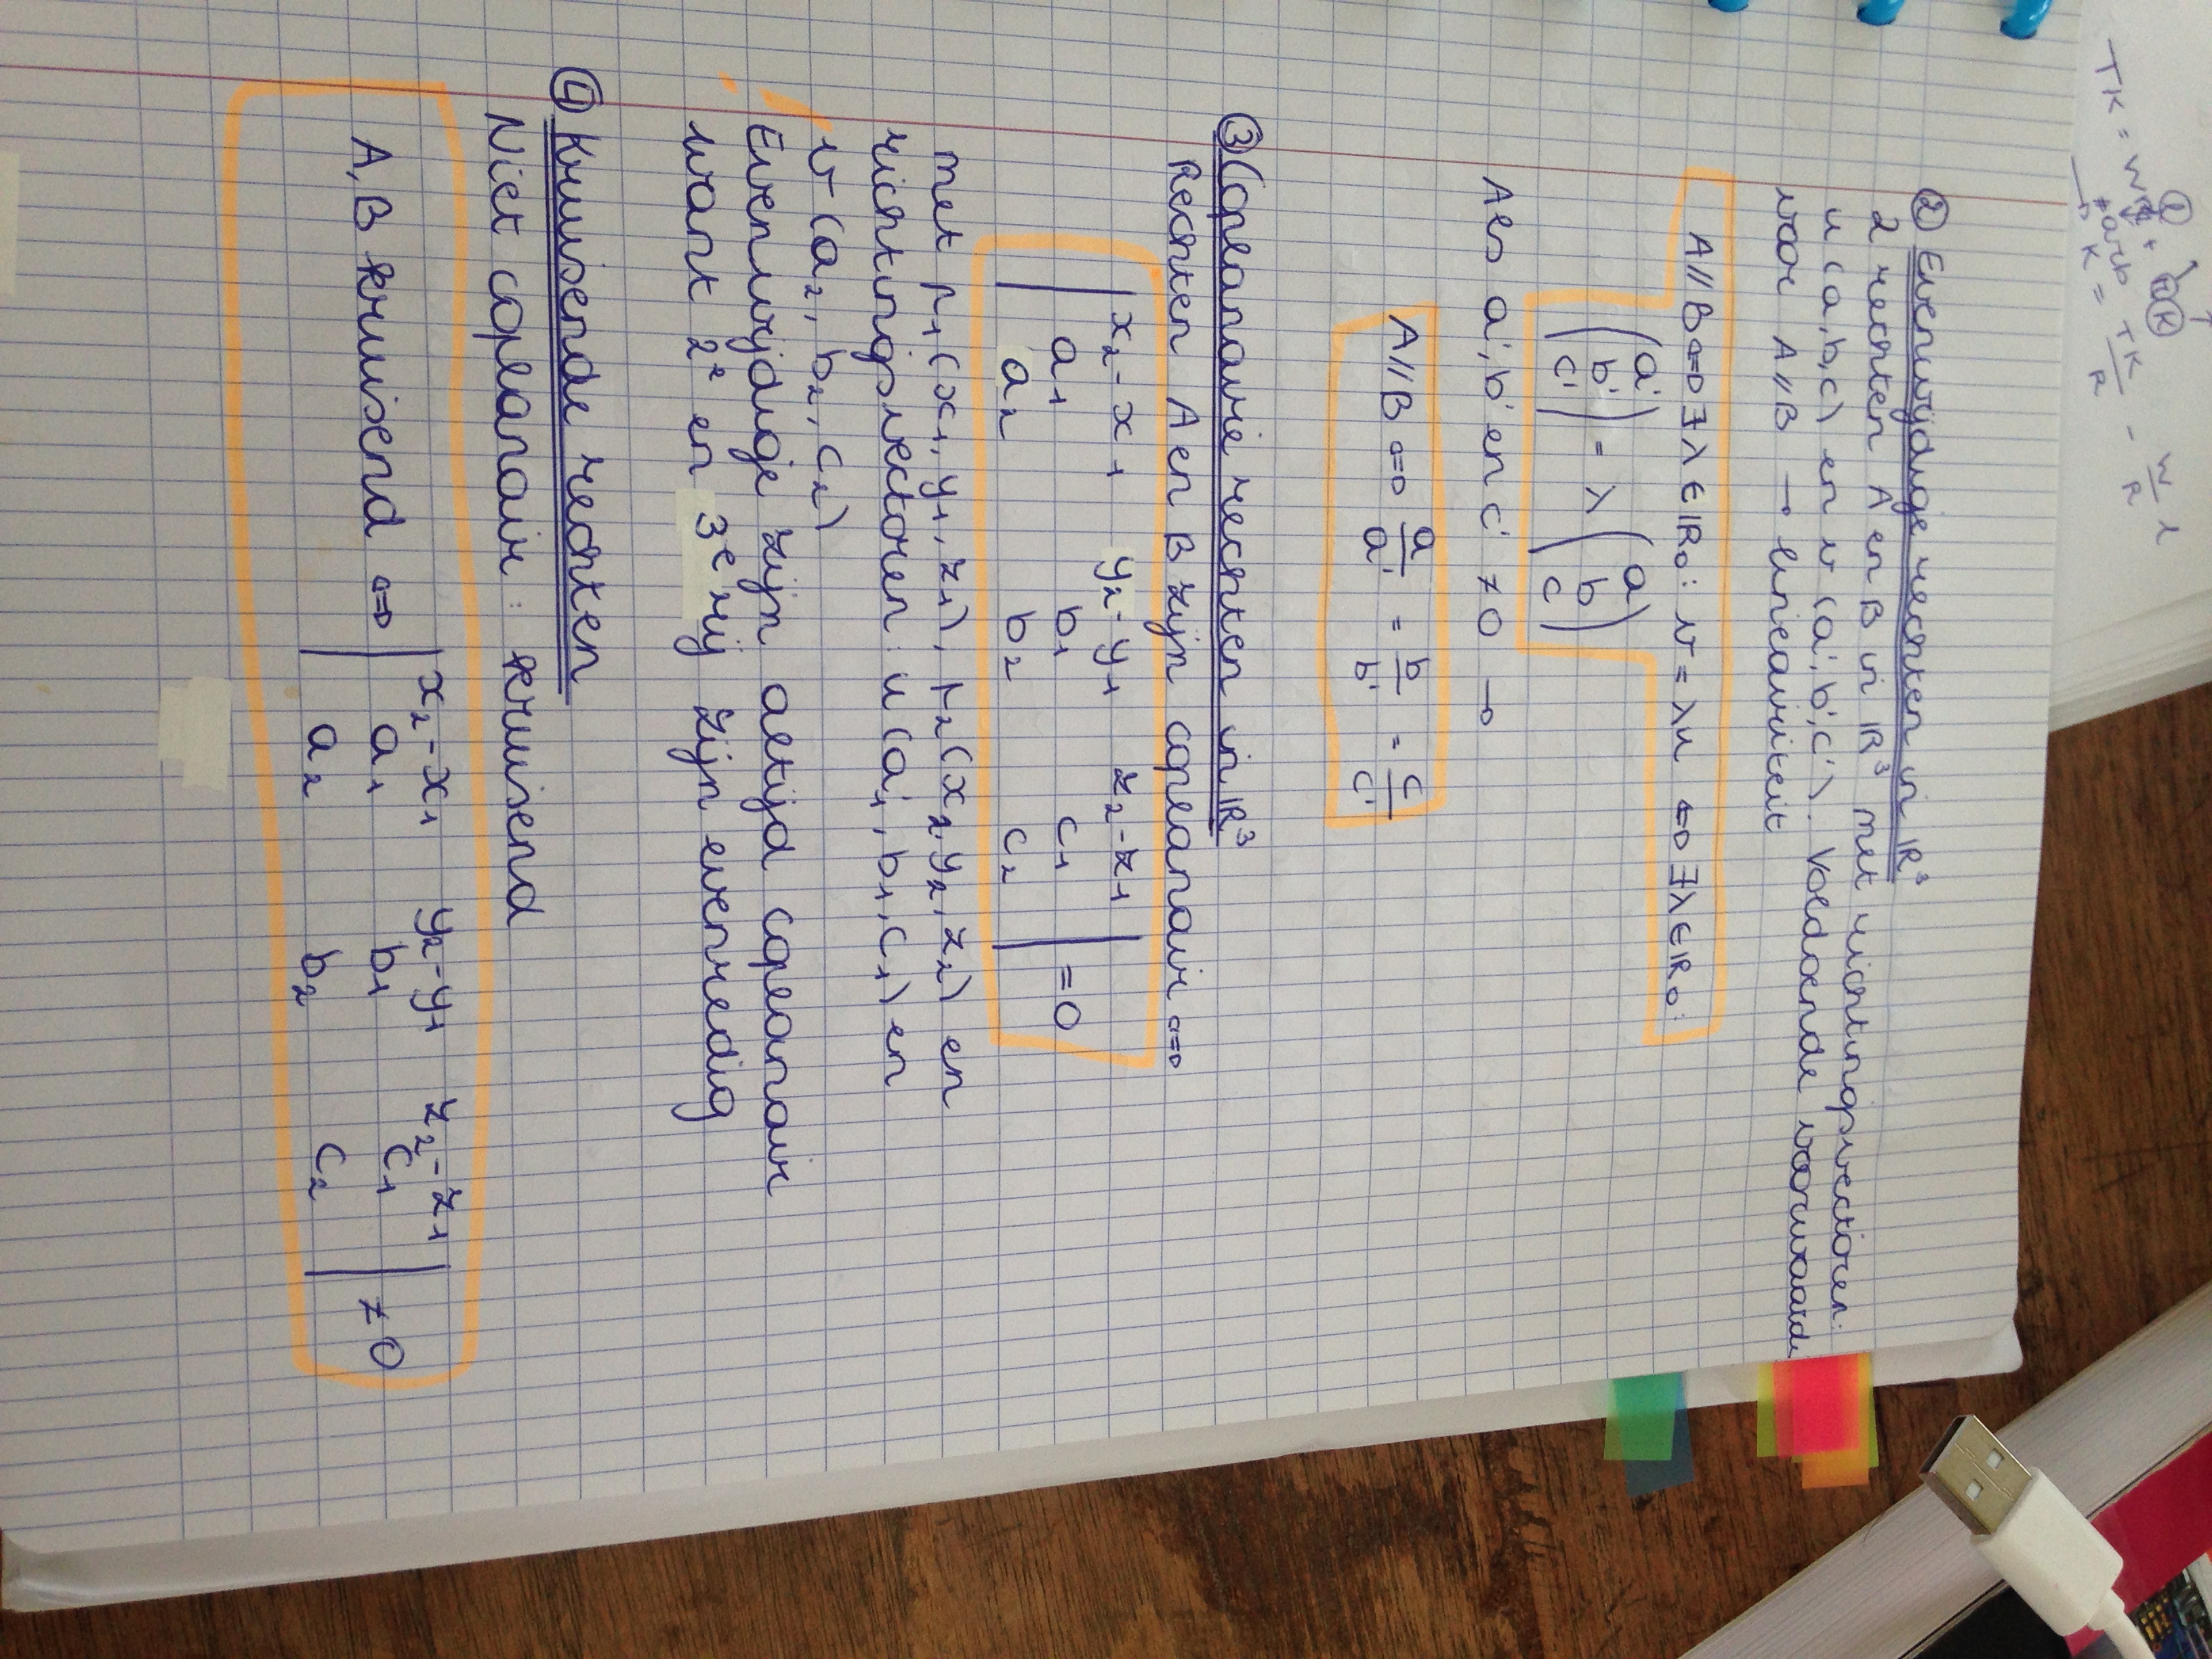 ② Evenwijdige rechten in ℝ³
2 rechten A en B in ℝ³ met richtingsvectoren:
u(a,b,c) en v(a',b',c'). Voldoende voorwaarde
voor A//B → lineariteit
A//B ⇔ ∃λ∈ℝ₀: v = λu ⇔ ∃λ∈ℝ₀:
(a')     (a)
(b') = λ (b)
(c')     (c)
Als a', b' en c' ≠ 0 →
A//B ⇔ a/a' = b/b' = c/c'
③ Coplanaire rechten in ℝ³
Rechten A en B zijn coplanair ⇔
| x₂-x₁  y₂-y₁  z₂-z₁ |
| a₁  b₁  c₁ | = 0
| a₂  b₂  c₂ |
met p₁(x₁, y₁, z₁), p₂(x₂, y₂, z₂) en
richtingsvectoren: u(a₁, b₁, c₁) en
v(a₂, b₂, c₂)
Evenwijdige zijn altijd coplanair
want 2ᵉ en 3ᵉ rij zijn evenredig
④ Kruisende rechten
Niet coplanair: kruisend
| x₂-x₁  y₂-y₁  z₂-z₁ |
A, B kruisend ⇔ | a₁  b₁  c₁ | ≠ 0
| a₂  b₂  c₂ |